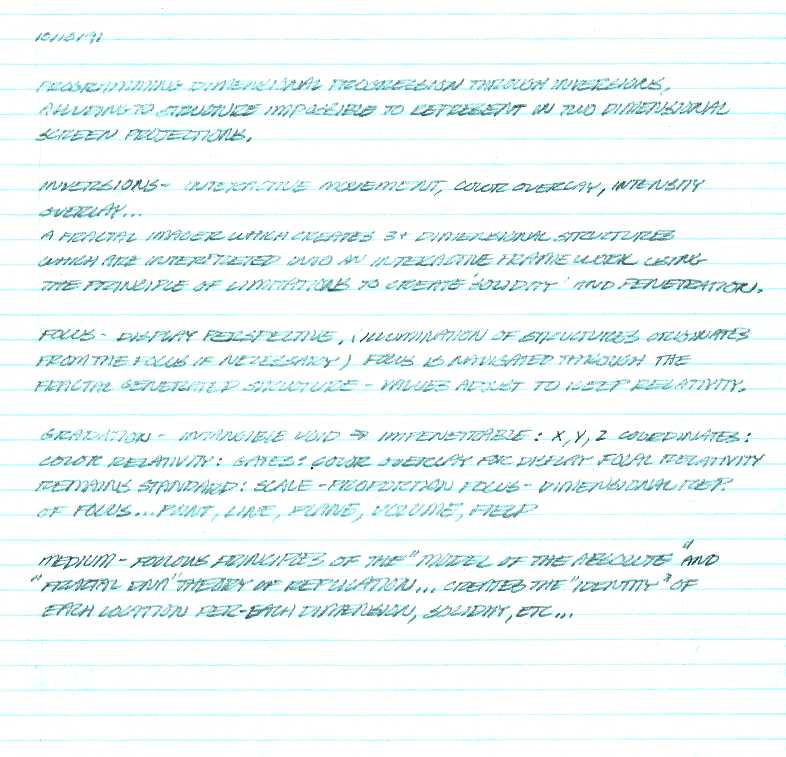 10/10/91
PROGRAMMING DIMENSIONAL PROGRESSION THROUGH INVERSIONS,
ALLUDING TO STRUCTURE IMPOSSIBLE TO REPRESENT IN TWO DIMENSIONAL
SCREEN PROJECTIONS.
INVERSIONS - INTERACTIVE MOVEMENT, COLOR OVERLAY, INTENSITY
OVERLAY...
A FRACTAL IMAGER WHICH CREATES 3+ DIMENSIONAL STRUCTURES
WHICH ARE INTERPRETED INTO AN INTERACTIVE FRAME WORK USING
THE PRINCIPLE OF LIMITATIONS TO CREATE 'SOLIDITY' AND PENETRATION.
FOCUS - DISPLAY PERSPECTIVE, (ILLUMINATION OF STRUCTURES ORIGINATES
FROM THE FOCUS IF NECESSARY) FOCUS IS NAVIGATED THROUGH THE
FRACTAL GENERATED STRUCTURE - VALUES ADJUST TO KEEP RELATIVITY.
GRADATION - INTANGIBLE VOID → IMPENETRABLE: X, Y, Z COORDINATES:
COLOR RELATIVITY: GATES: COLOR OVERLAY FOR DISPLAY FOCAL RELATIVITY
REMAINS STANDARD: SCALE - PROPORTION FOCUS - DIMENSIONAL REP.
OF FOCUS... POINT, LINE, PLANE, VOLUME, FIELD
MEDIUM - FOLLOWS PRINCIPLES OF THE "MODEL OF THE ABSOLUTE" AND
"FRACTAL DNA" THEORY OF REPLICATION... CREATES THE "IDENTITY" OF
EACH LOCATION PER-EACH DIMENSION, SOLIDITY, ETC...